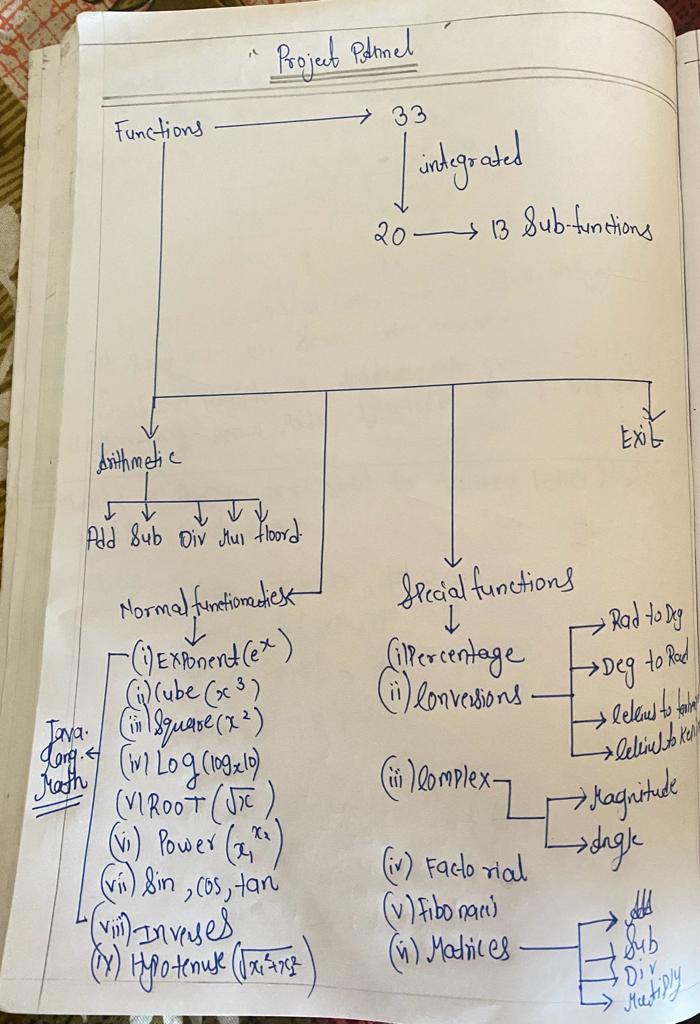 Project
Functions → 33
integrated
20 → 13 Sub-functions
Exit
Arithmetic
Add Sub Div Mul floord.
Normal functionacties
(i) Exponent (e^x)
(ii) Cube (x³)
(iii) Square (x²)
(iv) Log (log x10)
(v) Root (√x)
(vi) Power (x₁^x₂)
(vii) Sin, cos, tan
(viii) Inverses
(ix) Hypotenuse (√x₁²+x₂²)
Java.
Lang.
Math
Special functions
(i) Percentage
(ii) Conversions
Rad to Deg
Deg to Rad
Celcius to
Celcius to
(iii) Complex
Magnitude
Angle
(iv) Factorial
(v) Fibonacci
(vi) Matrices
Add
Sub
Div
Multiply